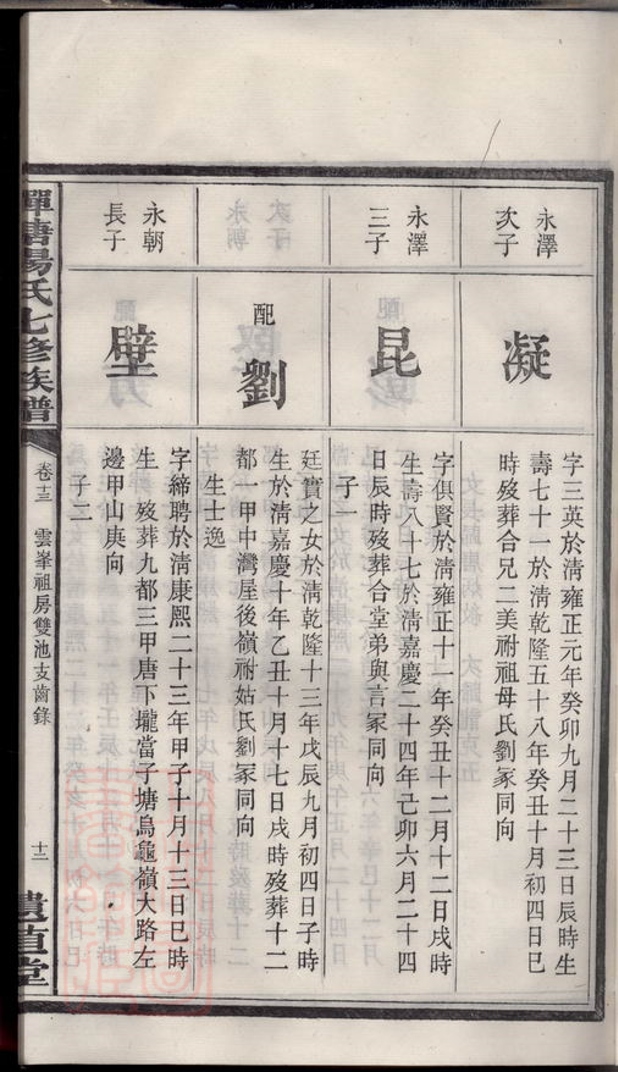 永澤
次子
凝
字三英於淸雍正元年癸卯九月二十三日辰時生
壽七十一於淸乾隆五十八年癸丑十月初四日巳
時歿葬合兄二美祔祖母氏劉冢同向
永澤
三子
昆
字俱賢於淸雍正十一年癸丑十二月十二日戌時
生壽八十七於淸嘉慶二十四年己卯六月二十四
日辰時歿葬合堂弟與言冢同向
子一
配
劉
廷實之女於淸乾隆十三年戊辰九月初四日子時
生於淸嘉慶十年乙丑十月十七日戌時歿葬十二
都一甲中灣屋後嶺祔姑氏劉冢同向
生士逸
永朝
長子
壁
字締聘於淸康熙二十三年甲子十月十三日巳時
生 歿葬九都三甲唐下壠當子塘烏龜嶺大路左
邊甲山庚向
子二
氏七修族譜
卷十三 雲峯祖房雙池支齒錄
十二